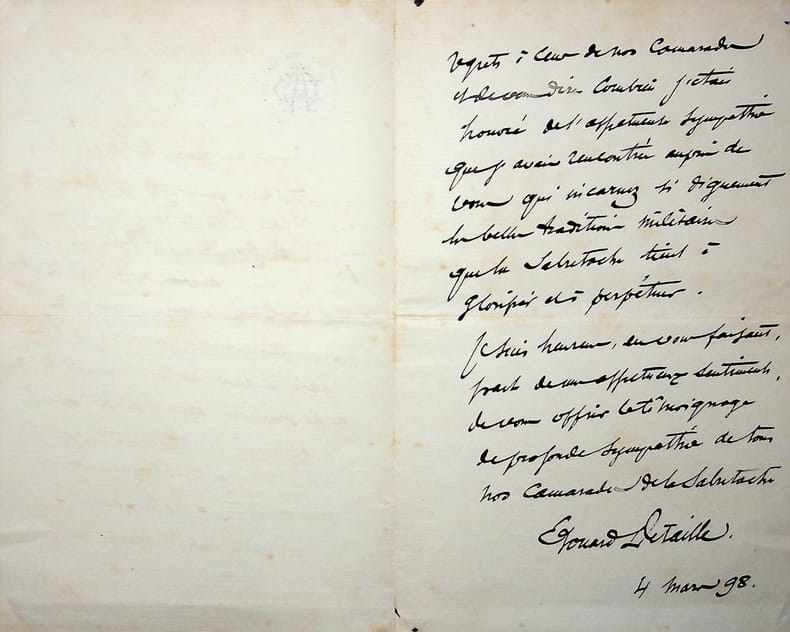 regrets à ceux de nos camarades
et de vous dire combien j'étais
honoré de l'affectueuse sympathie
que j'avais rencontrée auprès de
vous qui incarnez si dignement
les belles traditions militaires
que la Sabretache tient à
glorifier et à perpétuer.
Je suis heureux, en vous faisant
part de ces affectueux sentiments,
de vous offrir le témoignage
de profonde sympathie de tous
nos camarades de la Sabretache
Edouard Detaille.
4 mars 98.